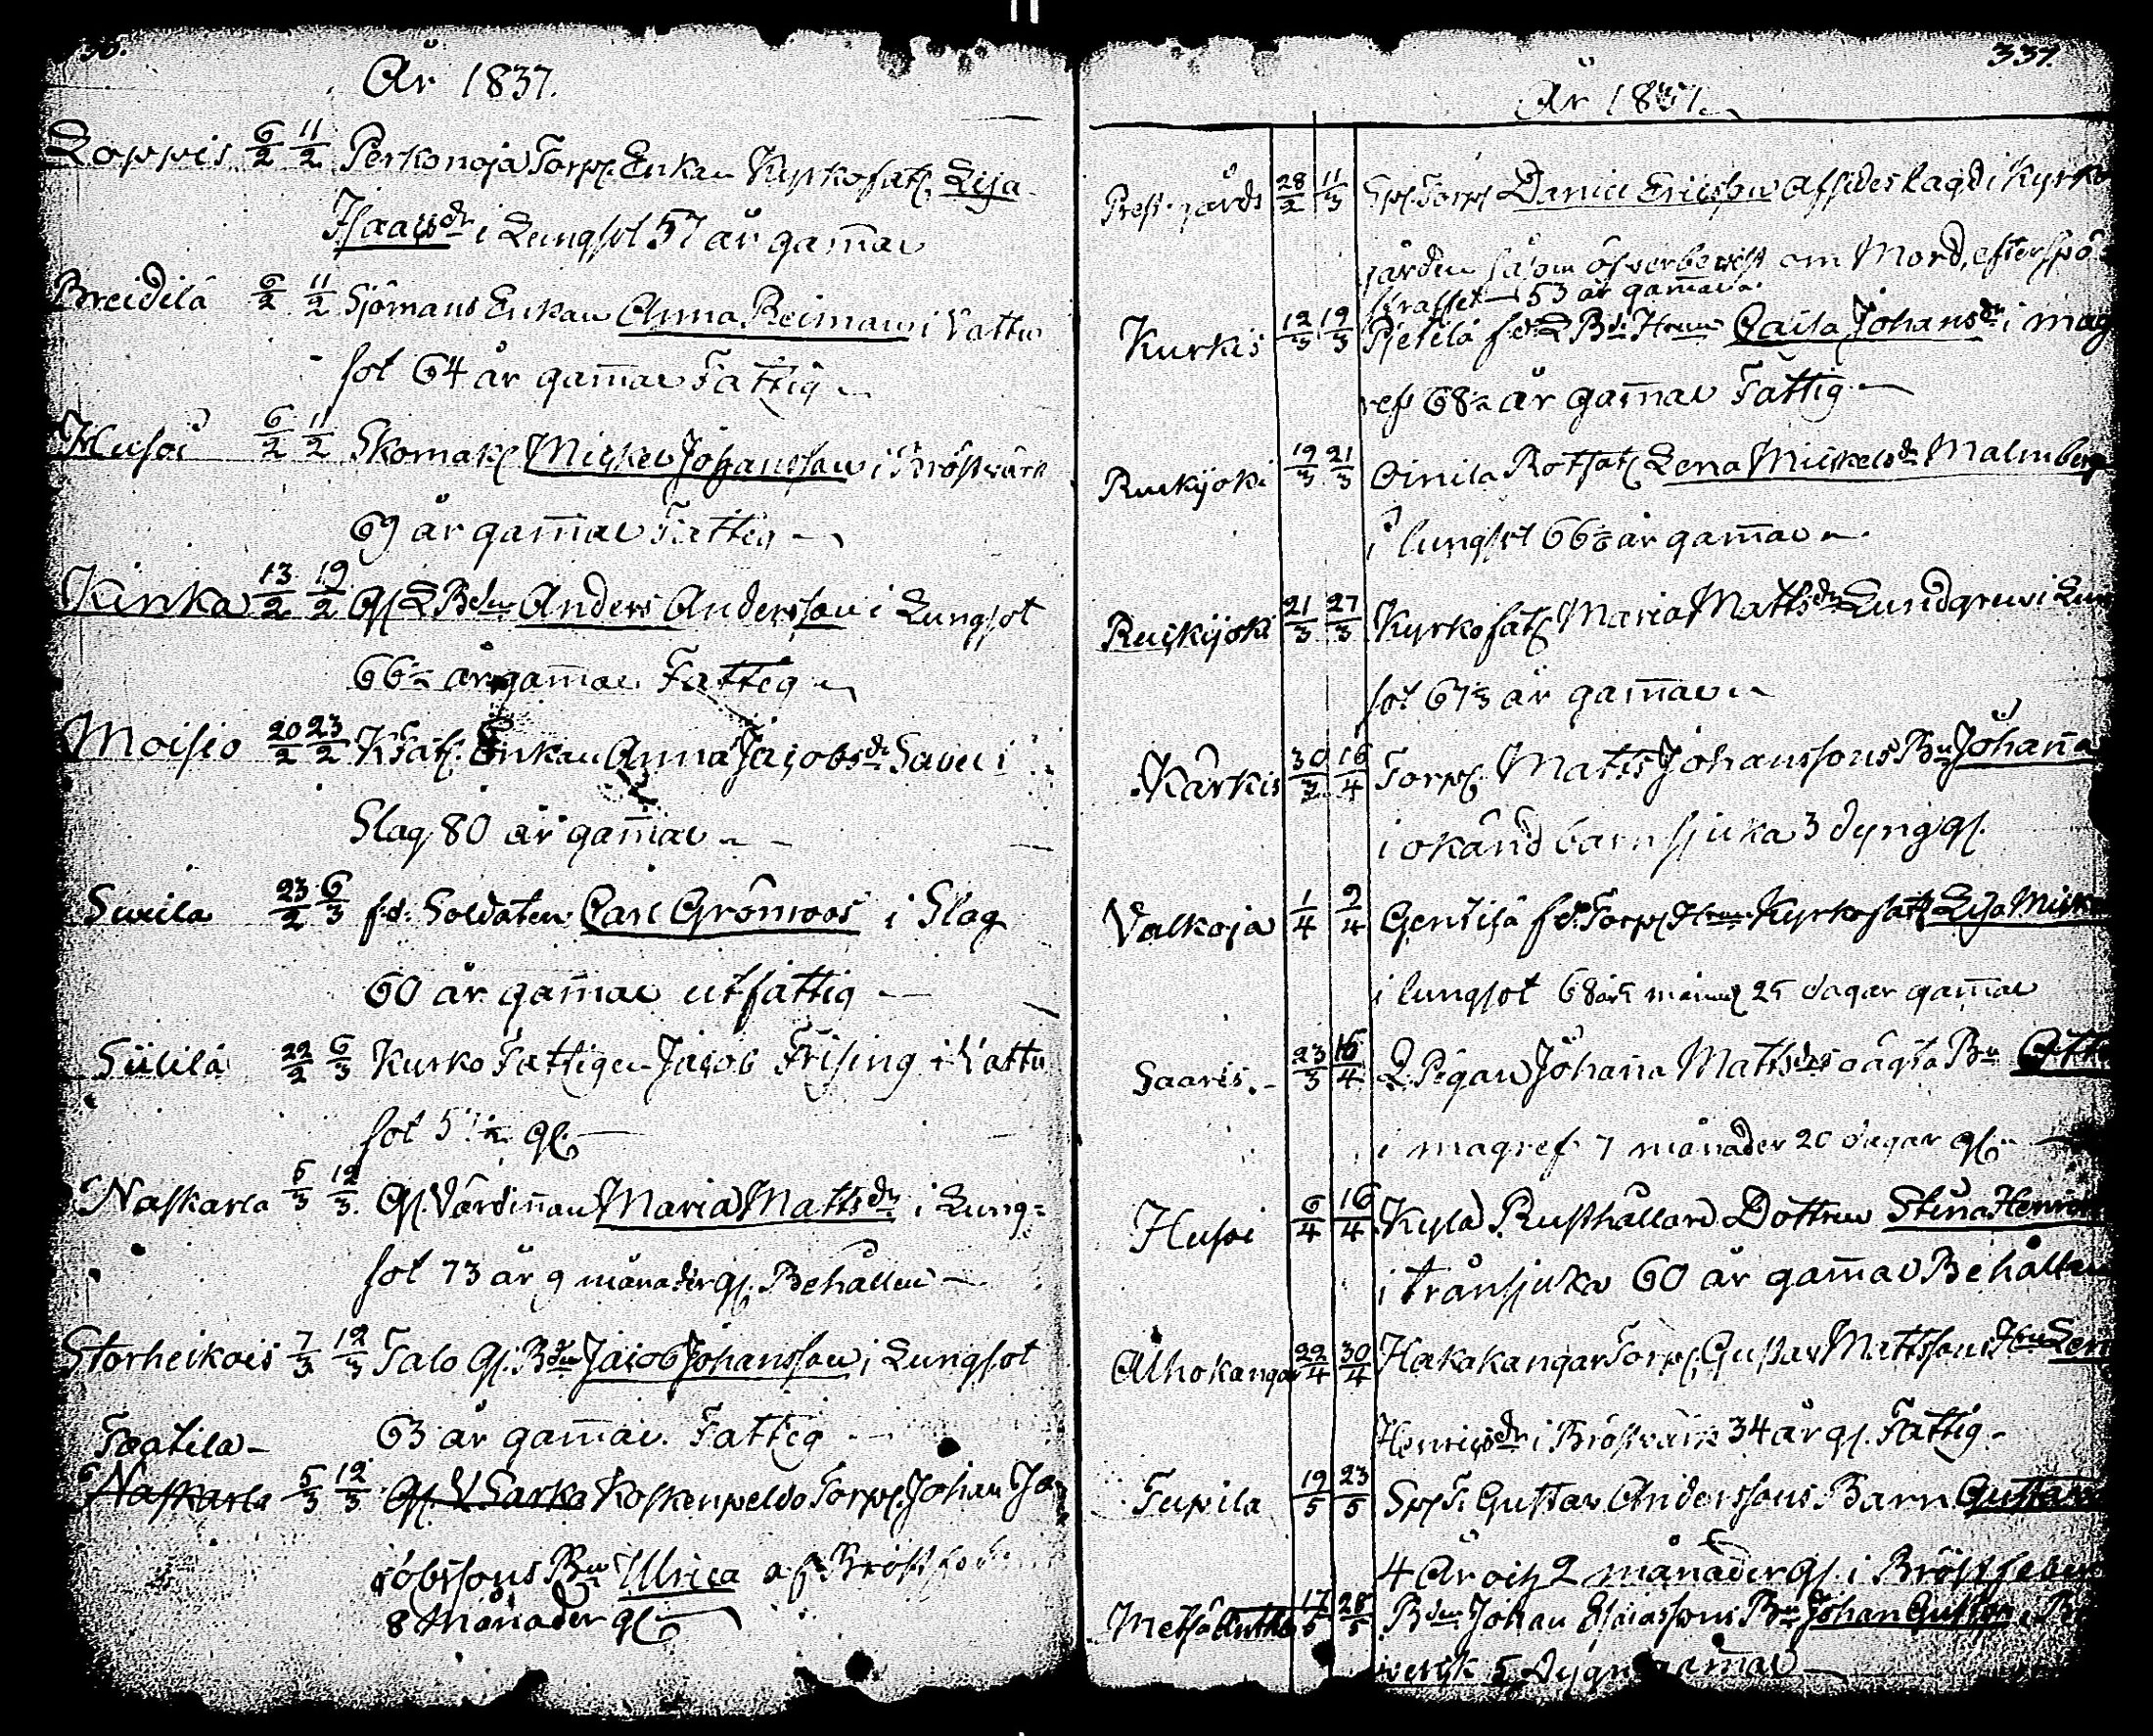 År 1837.
Loppis 6/2 11/2 Perkonoja Torp. Enkan Kyrkofat. Lisa
Isaacsdr i Lungsot 57 år gammal
Breidilä 6/2 11/2 Sjömans Enkan Anna Reiman i Vattu
sot 64 år gammal Fattig
Husoi 6/2 11/2 Skomak. Mickel Johansson i Bröstvärk
69 år gammal Fattig
Kinka 13/2 19/2 Gl. L. Bdn Anders Andersson i Lungsot
66 år gammal Fattig
Moisio 20/2 23/2 Enkan Anna Jacobsdr i
Slag 80 år gammal
Suxila 23/2 6/3 f.d. Soldaten Carl Grönroos i Slag
60 år gammal utfattig
22/2 6/3 Fattigen Jacob Frising i Vattu
sot gl.
Naskarla 5/3 12/3 Gl. Värdinnan Maria Mattsdr i Lung-
sot 73 år 9 månader gl. Behållen
Storheikois 7/3 12/3 Talo Gl. Bdn Jacob Johansson i Lungsot
63 år gammal. Fattig
Taatila
Naskarla 5/3 12/3 Koskenpeldo Torp. Johan Ja-
cobssons Bn Ulrica af
8 Månader gl.
337.
År 1837.
Prestgårds 28/2 11/3 Torp. Daniel Ericsson afsides lagd i Kyrko
gården såsom öfverbevist om Mord,
straffet 53 år gammal.
Kurkis 12/3 19/3 Pietilä f.d. L. Bds Hru Caisa Johansdr i mag
ref 68 år gammal Fattig
Ruskijoki 19/3 21/3 Oinila Rotfat. Lena Mickelsdr Malmberg
i lungsot 66 år gammal
Ruskijoki 21/3 27/3 Kyrkofat. Maria Mattsdr Lundgren i Lung
sot år gammal
Kärkis 30/3 16/4 Torp. Matts Johanssons Bn Johanna
i okänd barnsjuka 3 dygn gl.
Valkoja 1/4 9/4 f.d. Torp. Hru Kyrkofat. Lisa
i lungsot 68 år månad 25 dagar gammal
Saaris 23/3 16/4 L. Pigan Johanna Mattsdrs oägta Bn
i magref 7 månader 20 dagar gl.
Husoi 6/4 16/4 Kylä Rusthållare Dottren Stina Henrics
i trånsjuka 60 år gammal Behållen
Alhokangas 22/4 30/4 Hakakangas Torp. Gustav Mattssons Hru Lena
Henricsdr i Bröstvärk 34 år gl. Fattig
Tupila 19/5 23/5 Gustav Anderssons Barn Gustava
4 År och 2 månader gl. i Bröstfeber
17/5 28/5 Bdn Johan Esaiassons Bn Johan Gustaf
5 Dygn gammal